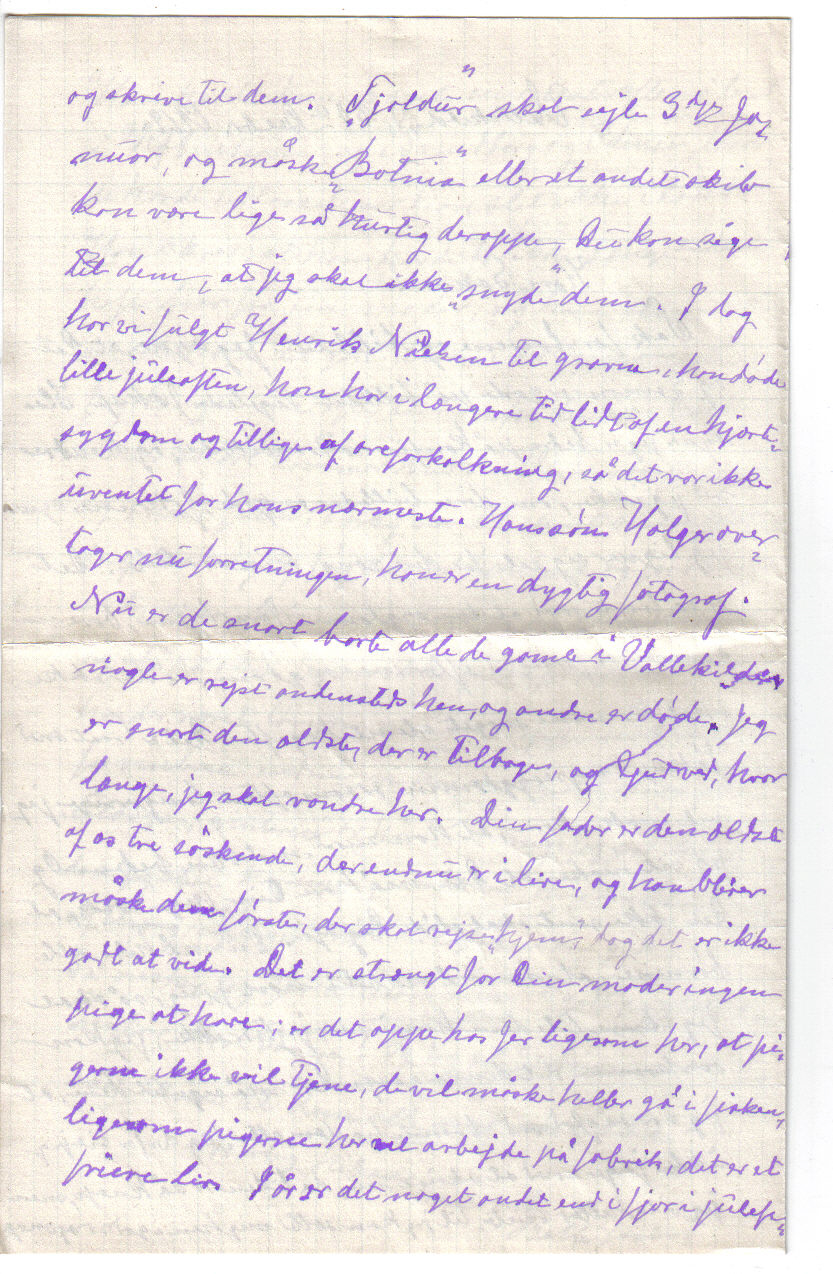 og skrive til dem. „Tjaldur“ skal sejle 3 ½ Ja-
nuar, og måske „Botnia“ eller et andet skib
kan være lige så hurtig deroppe, Du kan sige
til dem, at jeg skal ikke „snyde“ dem. I dag
har vi fulgt Henrik Nielsen til graven, han døde
lille juleaften, han har i længere tid lidt af en hjerte-
sygdom og tillige af åreforkalkning, så det var ikke
uventet for hans nærmeste. Hans søn Holger over-
tager nu forretningen, han er en dygtig fotograf.
Nu er de snart borte alle de gamle i Vallekilde,
nogle er rejst andensteds hen, og andre er døde. Jeg
er snart den ældste, der er tilbage, og Gud ved, hvor
længe, jeg skal vandre her. Din fader er den ældste
af os tre söskende, der endnu er i live, og han bliver
måske den første, der skal rejse „hjem“, dog det er ikke
godt at vide. Det er strengt for Din moder ingen
pige at have; er det oppe hos Jer ligesom her, at pi-
gerne ikke vil tjene, de vil måske heller gå i fisken,
ligesom pigerne her vil arbejde på fabrik, det er et
friere liv. I år er det noget andet end i fjor i jule-